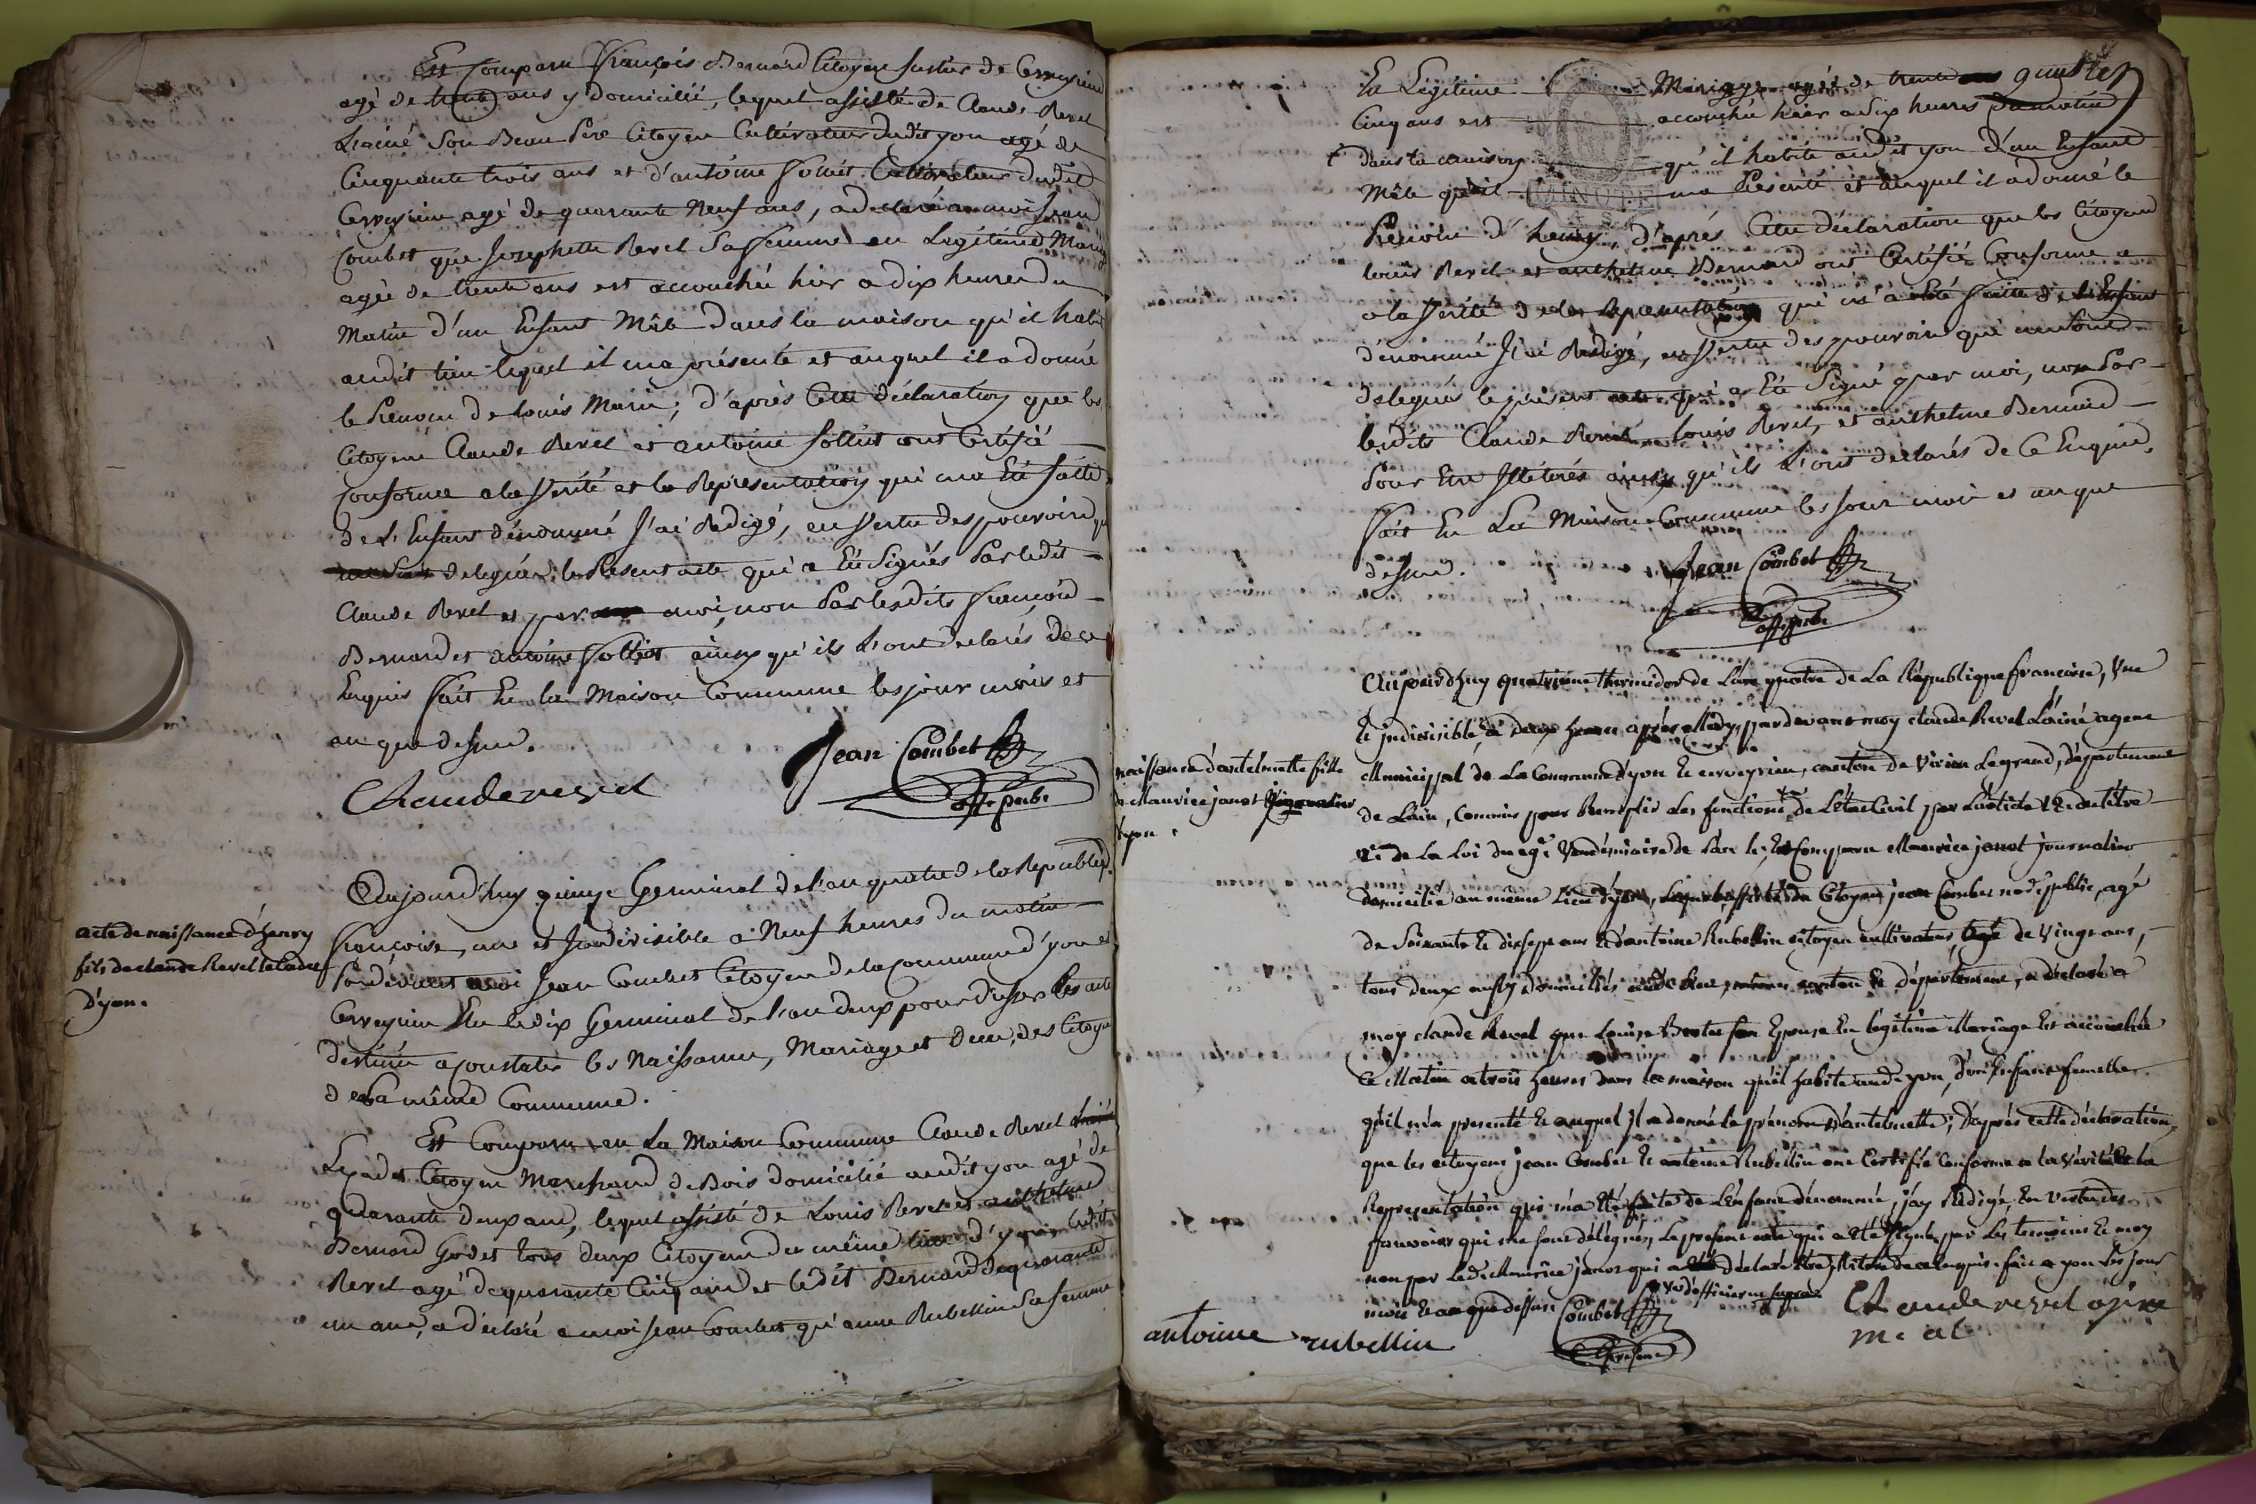 Est Comparu François Bernard Citoyen Justus de Cerveyrieu
agé de trente ans y domicilié, lequel assisté de Claude Revel
L'ainé Son Beau Pere Citoyen Cultivateur dudit yon agé de
Cinquante trois ans et d'antoine Solliet Cultivateur dudit
Cerveyrieu agé de quarante Neuf ans, a declaré a moi Jean
Combet que Josephette Revel Sa femme en Legitime Mariage
agée de trente ans est accouchée hier a dix heures du
Matin d'un Enfant Mâle dans la maison qu'il habite
audit lieu lequel il m'a présenté et auquel il a donné
le Prenom de Louis Marie; d'après Cette déclaration que les
Citoyens Claude Revel et antoine Solliet ont Certifié
Conforme a la Vérité et la Representation qui m'a Eté faitte
de L'Enfant dénommé J'ai Redigé, en Vertu des pouvoirs qui
delegués, le Present acte qui a Eté Signés Par ledit
Claude Revel et par moi, non Par lesdits François
Bernard et antoine Solliet ainsy qu'ils L'ont declarés de ce
Enquis Fait En la Maison Commune les jour mois et
an que dessus.
Jean Combet
offr public
Claude revel
Aujourd'huy quinze Germinal de l'an quatre de la Republique
Françoise, une et Indivisible a Neuf heures du matin
Pardevant moi Jean Combet Citoyen de la Commune d'yon et
Cerveyrieu Elu le dix Germinal de l'an deux pour dresser les actes
destinés a Constater les Naissances, Mariages et Deces des Citoyens
de la même Commune.
acte de naissance d'henry
fils de claude Revel le Cadet
d'yon.
Est Comparu en La Maison Commune Claude Revel
Le Cadet Citoyen Marchand de Bois domicilié audit yon agé de
quarante deux ans, lequel assisté de Louis Revel et anthelme
Bernard Godet tous deux Citoyens du même lieu d'yon ledit
Revel agé de quarante Cinq ans et ledit Bernard de quarante
un ans, a déclaré a moi Jean Combet qu'anne Rubellin Sa femme
En Légitime Mariage agée de trente quatre
Cinq ans est accouchée hier a dix heures du matin
dans la maison qu'il habite audit yon d'un Enfant
Mâle qu'il m'a Présenté et auquel il a donné le
Prenom d'henry, d'après Cette déclaration que les Citoyens
Louis Revel et anthelme Bernard ont Certifié Conforme
a la Vérité et la Representation qui m'a Eté faitte de L'Enfant
dénommé J'ai Redigé, en Vertu des pouvoirs qui me sont
delegués le présent acte qui a Eté Signé par moi, non Par
lesdits Claude Revel Louis Revel, et anthelme Bernard
Pour Etre Illiterés ainsy qu'ils L'ont declarés de Ce Enquis.
Fait En La Maison Commune les jour mois et an que
dessus.
Jean Combet
offr public
Aujourd'huy quatrieme thermidor de L'an quatre de La République francoise, Une
Et Indivisible, à deux heures après Midy, pardevant moy claude Revel L'ainé agent
Municipal de La Commune d'yon Et cerveyrieu, canton de Virieu Legrand, département
de L'ain, Commis pour Remplir Les fonctions de L'état Civil par L'article
de La Loi du Vendémiaire de L'an Est Comparu Maurice janot journalier
domicilié au même Lieu d'yon, Lequel assisté du Citoyen jean Combet public, agé
de Soixante Et dix sept ans Et d'antoine Rubellin citoyen cultivateur, agé de Vingt ans,
tous deux aussy domiciliés audit lieu, même canton Et département, a déclaré a
moy claude Revel que Louise son Epouse En légitime Mariage Est accouchée
ce Matin a trois heures dans la maison qu'il habite audit yon, d'un Enfant femelle
qu'il m'a présenté Et auquel Il a donné Le prénom d'antelmette; d'après cette déclaration
que les citoyens jean Combet Et antoine Rubellin ont Certifié Conforme a la Vérité Et la
Representation qui m'a Eté faite de L'Enfant dénommé, j'ay Rédigé, En Vertu des
pouvoirs qui me sont délégués, Le présent acte qui a Eté signé par Les témoins Et moy
non par Ledit Maurice janot qui a déclaré être Illiteré de ce Enquis. fait a yon Les jour
mois Et an que dessus
naissance d'antelmette fille
de Maurice janot
d'yon
Combet
Claude revel agent
m. al
antoine rubellin